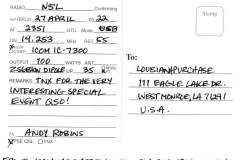 RADIO N5L Confirming
our QSO of 27 APRIL 20 22
AT 2351 UTC Mode USB
On 14.253 MHz RST 55
ICOM IC-7300
OUTPUT 100 WATTS ANT
DIPOLE UP 35
REMARKS TNX FOR THE VERY
INTERESTING SPECIAL
EVENT QSO!
TO
ANDY ROBINS
PSE QSL TNX
Stamp
To:
LOUISIANA PURCHASE
111 EAGLE LAKE DR.
WEST MONROE, LA 71291
U.S.A.